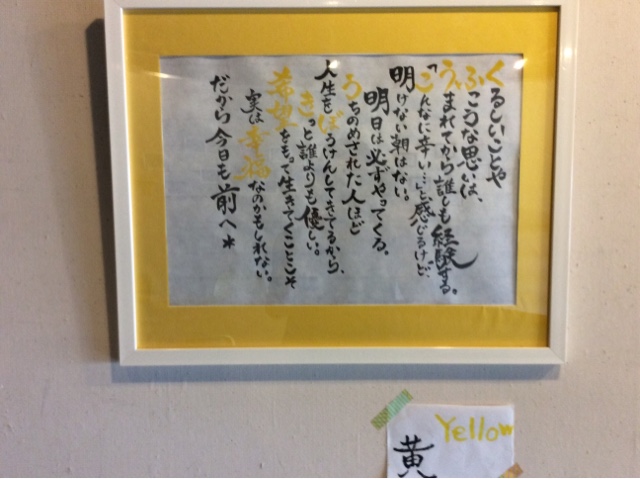 くるしいことや
ふこうな思いは、
うまれてから誰しも経験する。
「こんなに辛い…」と感じるけど、
明けない朝はない。
明日は必ずやってくる。
うちのめされた人ほど
人生をぼうけんしてきてるから、
きっと誰よりも優しい。
希望をもって生きてくことこそ
実は幸福なのかもしれない。
だから今日も前へ*
Yellow
黄